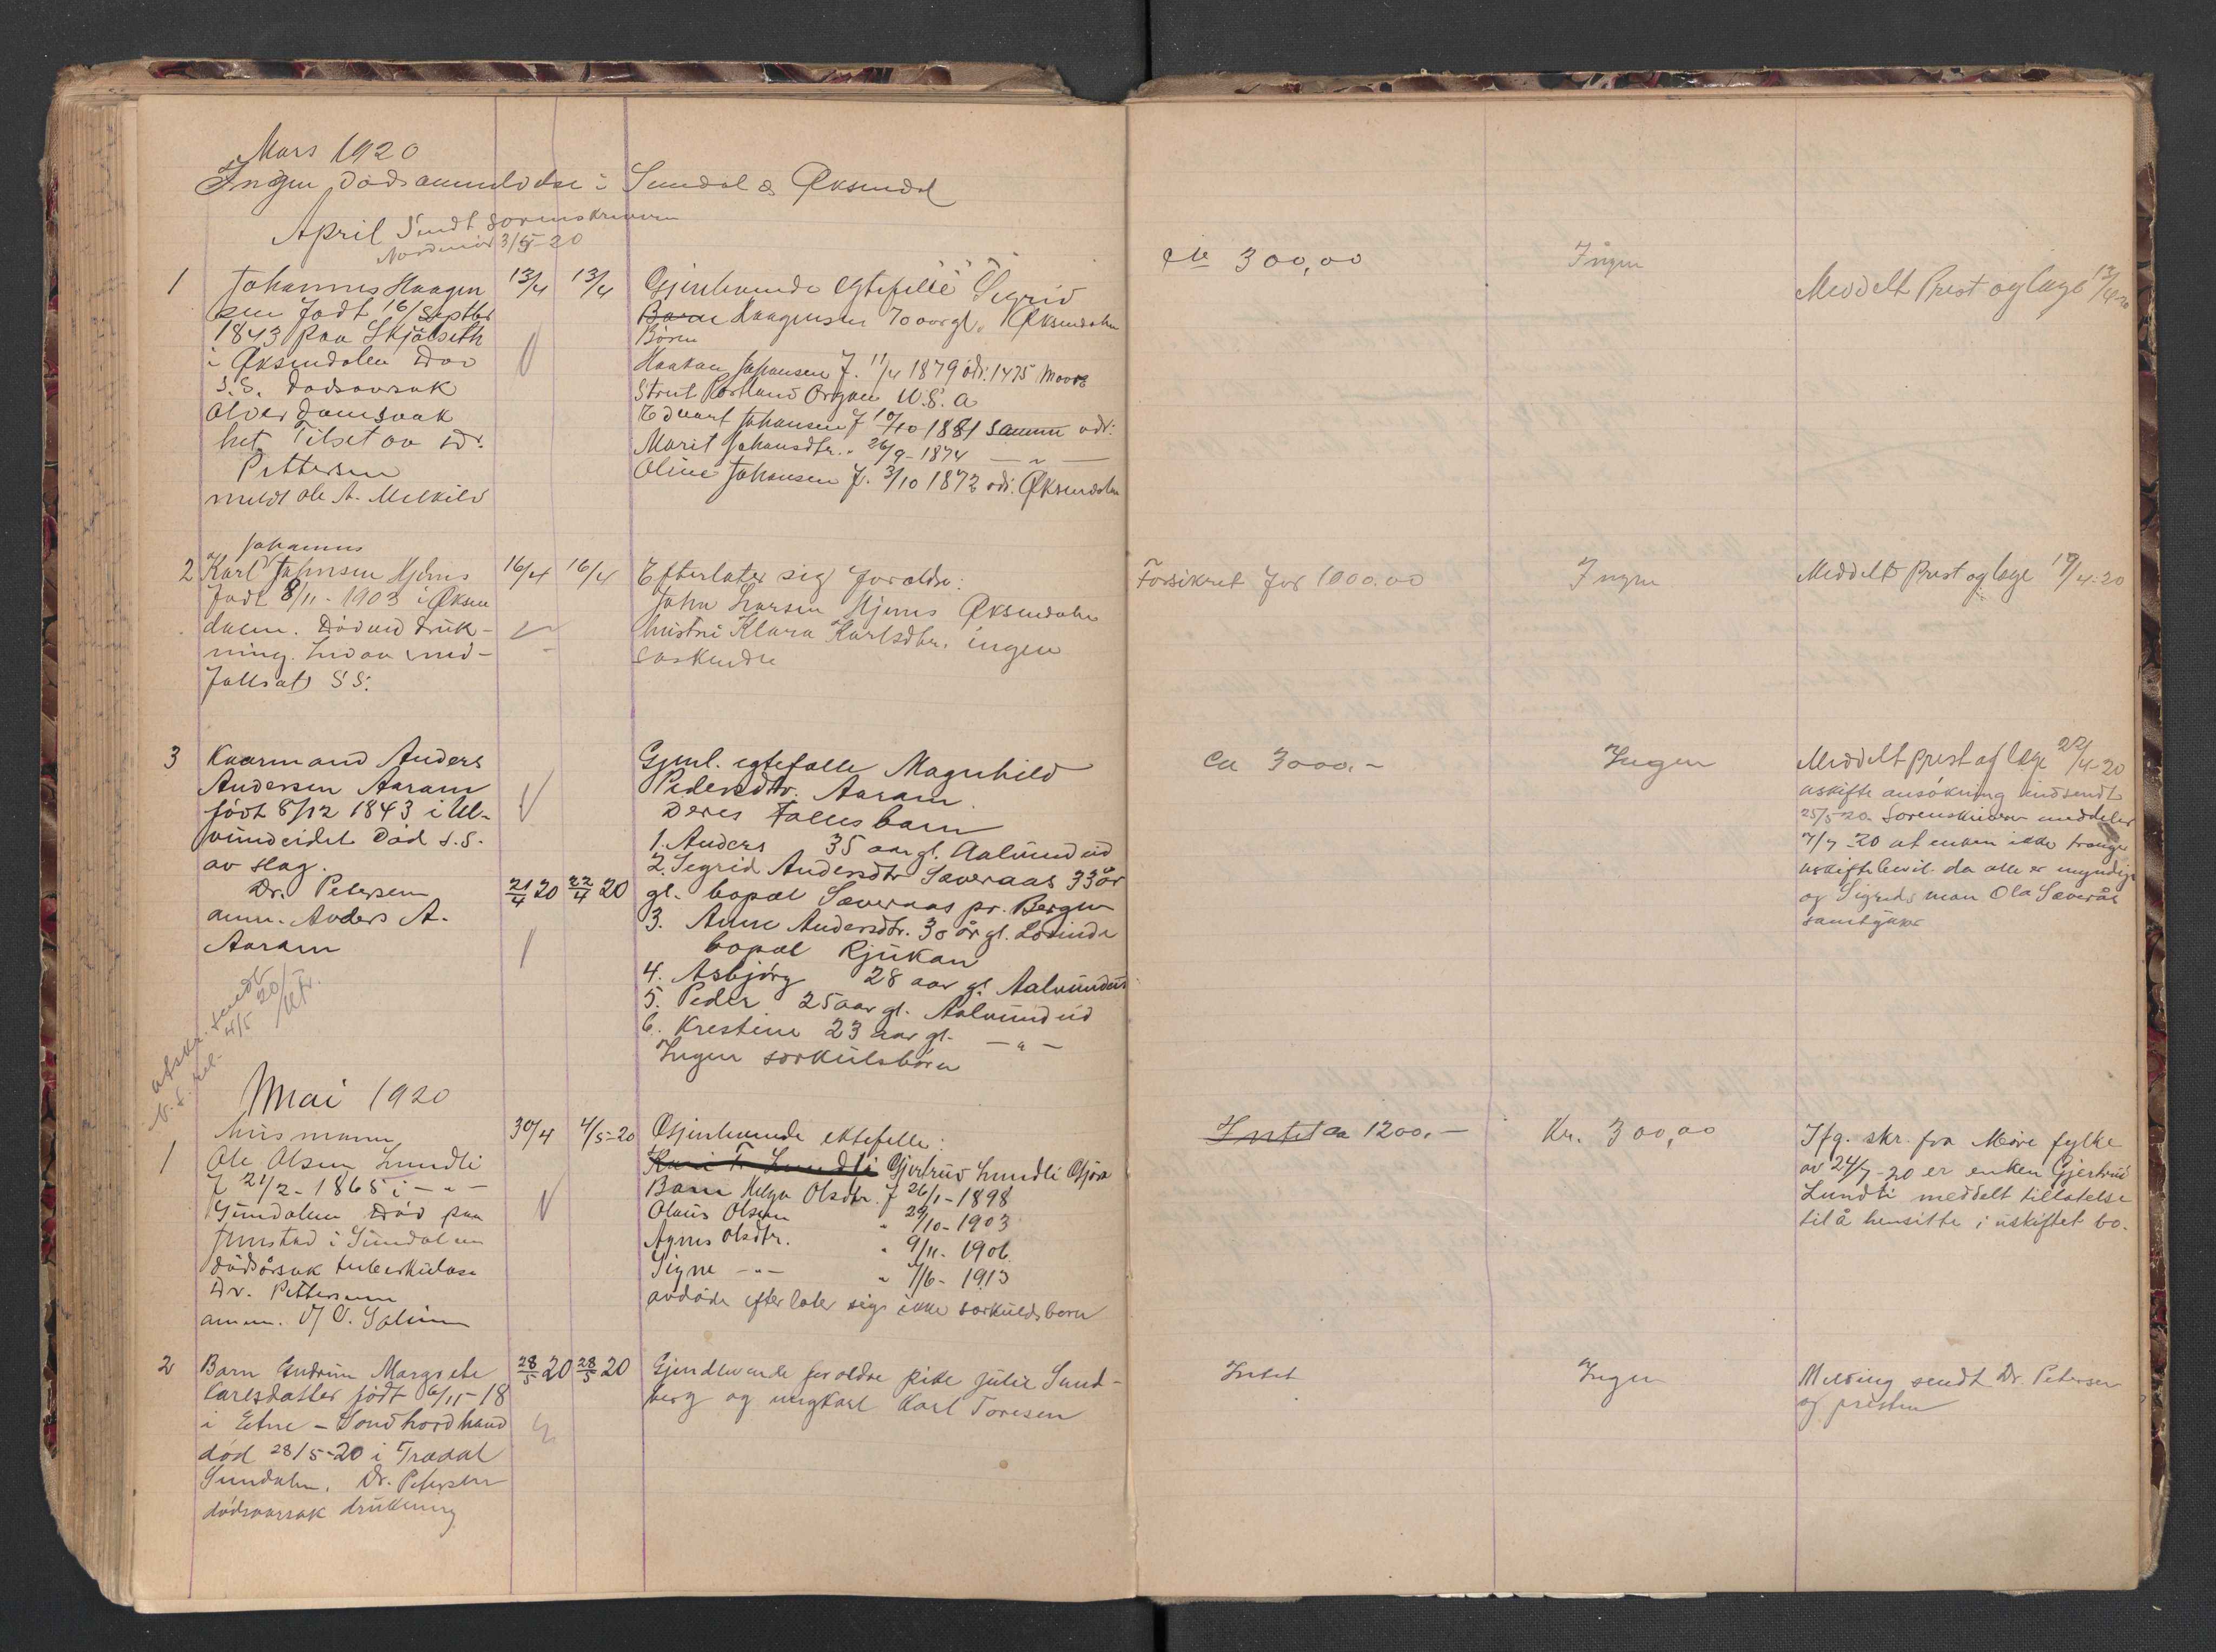 Mars 1920
Ingen dødsanmeldelse i Sundal & Øksendal
April Sendt Sorenskriveren
Nordmør 3/5-20
1 Johannes Haagen
sen født 16/Septbr
1843 paa Skjølseth
i Øksendalen Død
S.S. Dødsaarsak
Alderdomsvak
het Tilset av Dr.
Pettersen
meldt Ole A. Melkild
13/4 13/4
Gjenlevende egtefelle Sigrid
Barn Haagensen 70 aar gl. Øksendalen
Børn
Haakan Johansen f. 11/4 1879 adr: 1475 Moore
Street Portland Orgon U.S.A
Edvart Johansen f 10/10 1881 samme adr:
Marit Johansdtr. " 26/9-1874 — " —
Oline Johansen f. 3/10 1872 adr. Øksendalen
ca 300,00
Ingen
Meddelt Prest og læge 13/4-20
Johannes
2 Karl Johnsen Hjems
født 8/11-1903 i Øksen
dalen. Død ved druk-
ning.
16/4 16/4
Efterlater sig forældre:
John Larsen Hjems Øksendalen
hustru Klara Karlsdtr. ingen
søskendre
Forsikret for 1000.00
Ingen
Meddelt Prest og læge 19/4-20
3 Kaarmand Anders
Andersen Aaram
født 8/12 1843 i Ul-
vundeidet Død S.S.
av slag.
Dr. Petersen
anm. Anders A.
Aaram
21/4 20 22/4 20
Gjenl. egtefælle Magnhild
Pedersdtr. Aaram
Deres Fælles barn
1. Anders 35 aar gl. Aalvundeid
2. Sigrid Andersdtr Sæveraas 33 år
gl. bopæl Sæveraas pr. Bergen
3. Anne Andersdtr. 30 år gl.
bopæl Rjukan
4. Asbjørg 28 aar gl Aalvundeid
5. Peder 25 aar gl. Aalvundeid
6. Krestine 23 aar gl. — " —
Ingen særkulsbörn
Ca 3000.-
Ingen
Meddelt prest og læge 22/4-20
uskifte ansökning indsendt
25/5 20. Sorenskriveren meddeler
7/7-20 at enken ikke trænger
uskiftebevil. da alle er myndige
og Sigrids man Ola Sæverås
samtykker
afskr. sendt
4/5 20
Mai 1920
1 husmann
Ole Olsen Lundli
f 21/2-1865 i — " —
Sundalen Død paa
i Sundalen
dödsårsak tuberkulose
Dr. Pettersen
anm.
30/4 4/5-20
Gjenlevende ektefelle:
Kari T. Lundli Gjertrud Lundli Gjøra
Barn Helga Olsdtr. f 26/1-1898
Olaus Olsen " 29/10-1903
Agnes Olsdtr. " 9/11-1906
Signe — " — " 1/6-1913
avdøde efterlater sig ikke særkuldsbørn
Intet ca 1200.—
Kr. 300,00
Ifg. skr. fra Møre fylke
av 24/7-20 er enken Gjertrud
Lundli meddelt tillatelse
til å hensitte i uskiftet bo.
2 Barn Gudrun Margrete
Carlsdatter født 6/11-18
i Etne - Söndhordland
død 28/5-20 i Trædal
Sundalen. Dr. Petersen
dödsaarsak drukning
28/5 20 28/5 20
Gjendlevende foroldre pike Julie Sund-
berg og ungkarl Karl Toresen
Intet
Ingen
Melding sendt Dr. Petersen
og presten